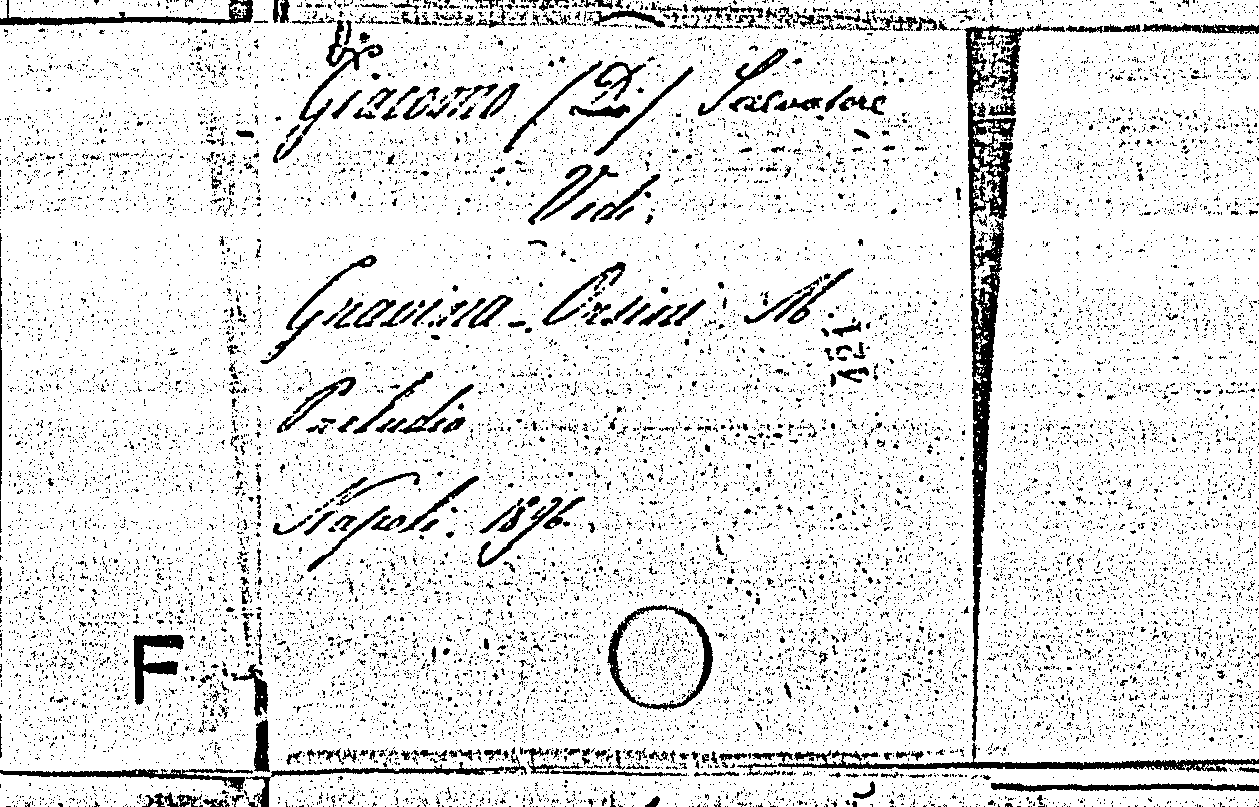 Giacomo (Di) Salvatore
Vedi.
Gravina-Orsini M.
121
Preludio
Napoli. 1896.
F